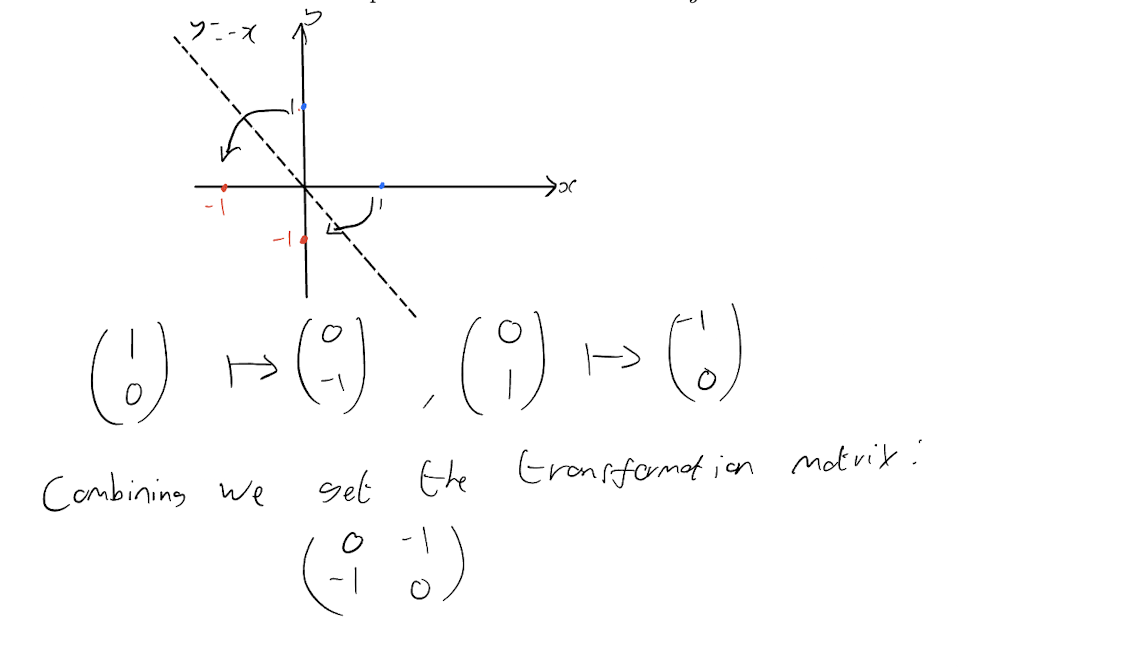 y=-x
y
1
1
x
-1
-1
(1 0) ↦ (0 -1) , (0 1) ↦ (-1 0)
Combining we get the transformation matrix:
(0 -1
-1 0)